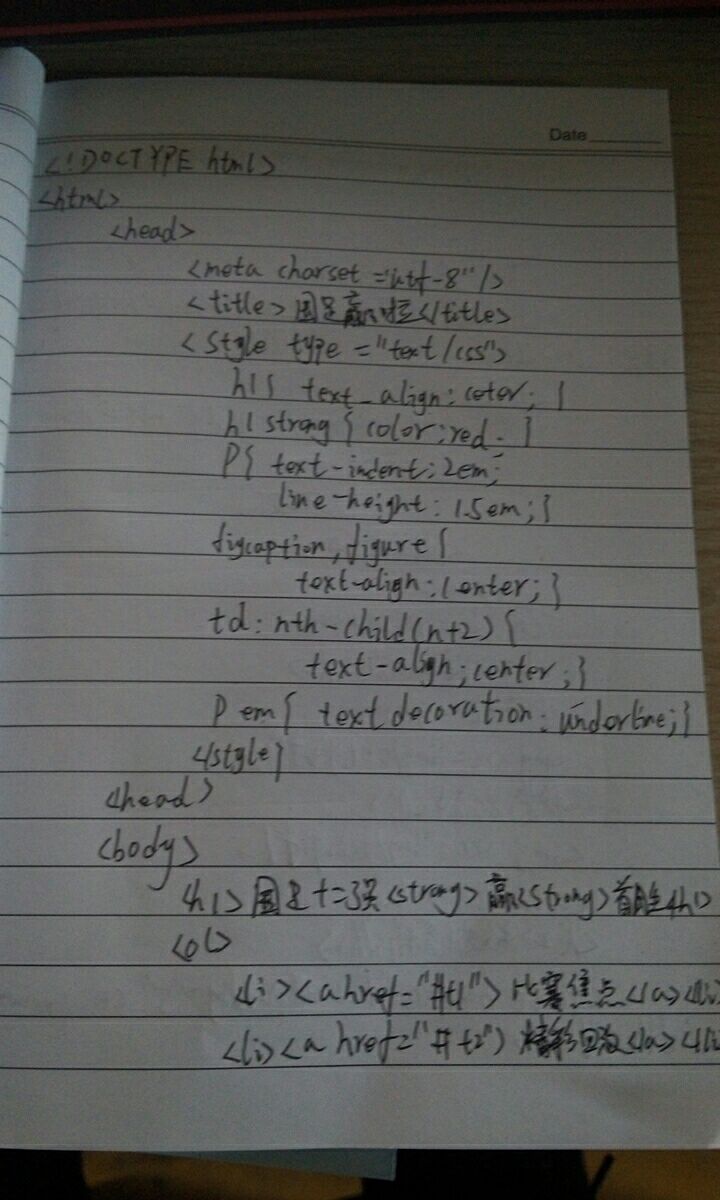 Date
<!DOCTYPE html>
<html>
<head>
<meta charset="utf-8"/>
<title>国足赢啦</title>
<style type="text/css">
h1{ text_align:ceter; }
h1 strong{ color:red; }
P{ text-indent:2em;
line-height:1.5em;}
figcaption,figure{
text-align:center;}
td:nth-child(n+2){
text-align;center;}
P em{ text decoration:underline;}
</style}
<head>
<body>
<h1>国足十二强<strong>赢<strong>首胜<h1>
<ol>
<li><a href="#t1">比赛焦点</a></li
<li><a href="#t2")精彩回放</a></li